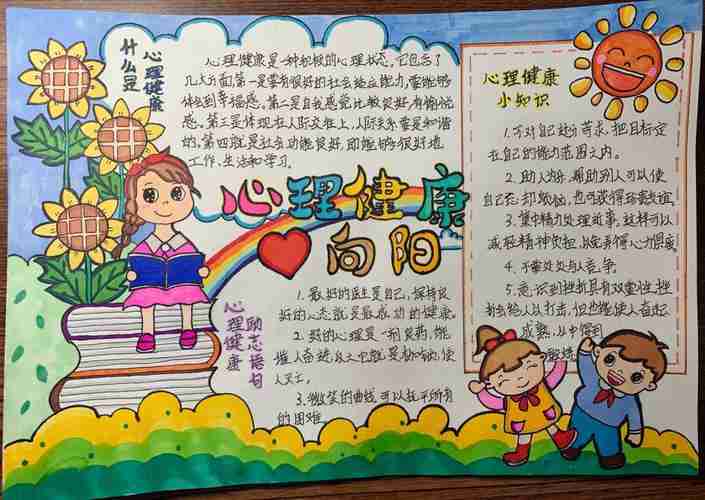 什么是
心理健康
心理健康是一种积极的心理状态,它包含了
几大方面,第一是要有很好的社会适应能力,要能够
体会到幸福感。第二是自我感觉比较良好,有愉悦
感。第三是体现在人际交往上,人际关系要是和谐
的,第四就是社会功能良好,即能够很好地
工作、生活和学习。
心理健康
向阳
心理健康
励志语句
1. 最好的医生是自己,保持良
好的心态就是最成功的健康。
2. 好的心理是一剂良药,能
催人奋进
人灭亡。
3. 微笑的曲线可以拉平所有
的困难
心理健康
小知识
1. 不对自己过分苛求,把目标定
在自己的能力范围之内。
2. 助人为乐,帮助别人可以使
自己忘却烦恼,也可获得珍贵友谊。
3. 集中精力处理
减轻精神负担
4. 不要处处与人竞争。
5. 意识到挫折具有双重性,挫
折会给人以打击,但也能使人奋起、
成熟,从中得到
锻炼